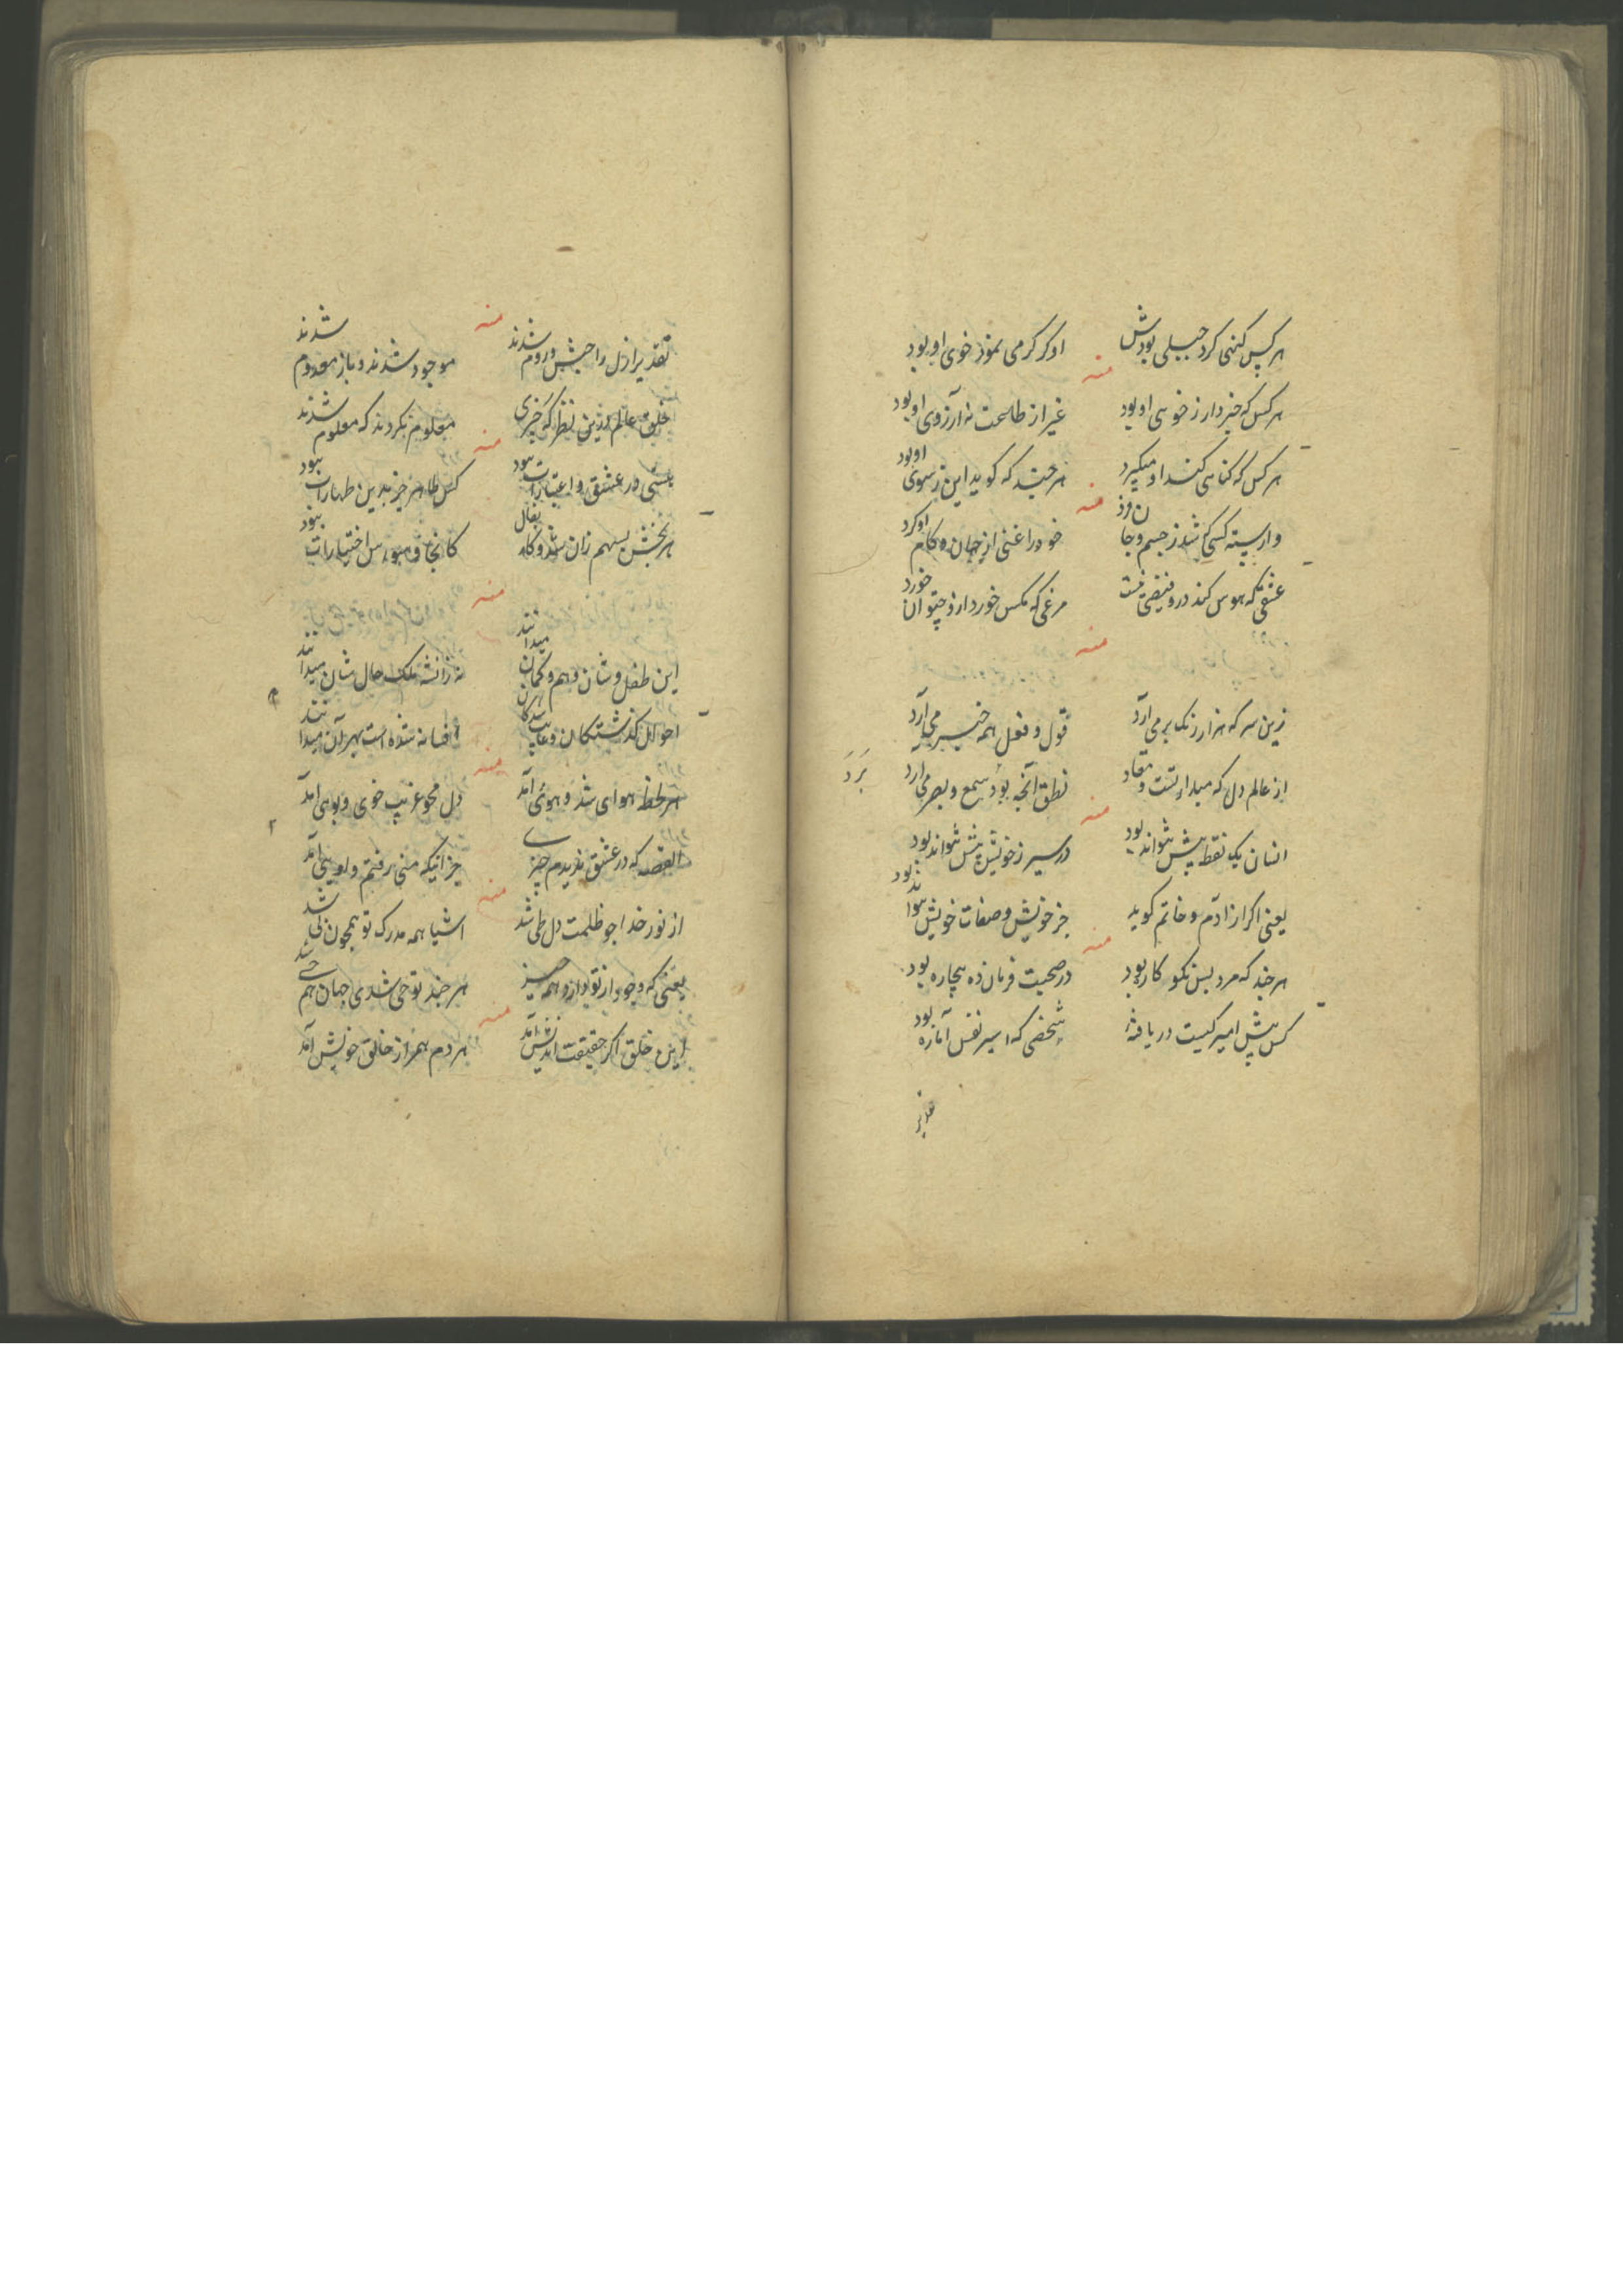 هر کس گنهی کرد جبلی بودش
او کر کرمی نمود خوی او بود
منه
هر کس که خبردار ز خوی او بود
غیر از طاعت نه آرزوی او بود
هر کس که کناهی کند او میگیرد
هر چند که کوید این ز سوی او بود
منه
وارسته کسی که شد ز جسم و جان فرد
خود را غنی از جهان کرد
عشقی که هوس کند درو فیضی نیست
مرغی که مکس خورد توان خورد
منه
زین سر که هزار زنک بر می آرد
قول و فعل همه خبر می آرد
از عالم دل که
نطق آنچه بود سمع و بصر می آرد
برد
منه
انسان یک نقطه پیش نتواند بود
در سیر ز خویش بیش نتواند بود
یعنی اکر از آدم و خاتم کوید
جز خویش و صفات خویش نتواند بود
منه
هر چند که مرد بس نکو کاره بود
در صحبت فرمان ده بیچاره بود
کس پیش امیر کیست دریافته
شخصی که اسیر نفس اماره بود
تقدیر
منه
تقدیر ازل را حبش و روم شدند
موجود شدند و باز معدوم شدند
خلق عالم نظر که خبری
معلوم نکردند که معلوم شدند
منه
هستی در عشق و اعتبارات نبود
کس طاهر جز بدین طهارات نبود
منه
این طفل وشان وهم و کمان میدانند
حال شان میدانند
احوال کذشتکان
افسانه شده است میدانند
منه
هر لحظه هوای شد و هوئی آمد
دل محو غریب خوی و بوی آمد
القصه که در عشق ندیدم چیزی
جز اینکه منی رفتم و اویی آمد
منه
از نور خدا چو ظلمت دل طی شد
اشیا همه مدرک تو همچون شد
یعنی که وجود از تو دارد همه چیز
هر چند تو حی شدی جهان هم حی شد
منه
این خلق اکر حقیقت اندیش آمد
هر دم از خالق خویش آمد